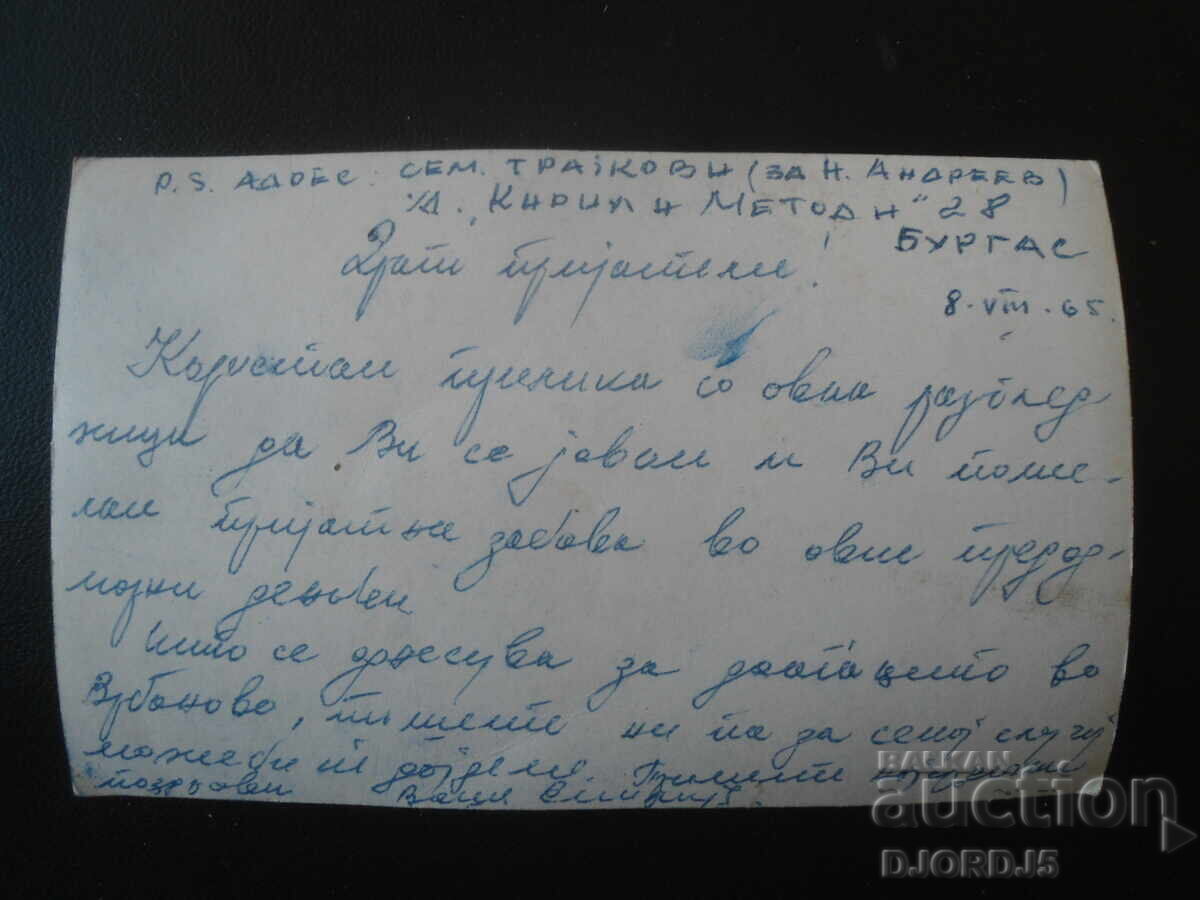 P.S. АДРЕС: СЕМ. ТРАЈКОВИ (ЗА Н. АНДРЕЕВ)
"КИРИЛ И МЕТОДИ" 28
БУРГАС
Драги пријатели!
8.VIII.65.
Користам прилика со оваа разглед-
ница да Ви се јавам и Ви поже-
лам пријатна забава во овие
денови
Што се за доаѓањето во
Врбаново, пишете ни па за секој случај
можеби и дојдеме. Примите
поздрави Ваши
BALKAN
auction
DJORDJ5